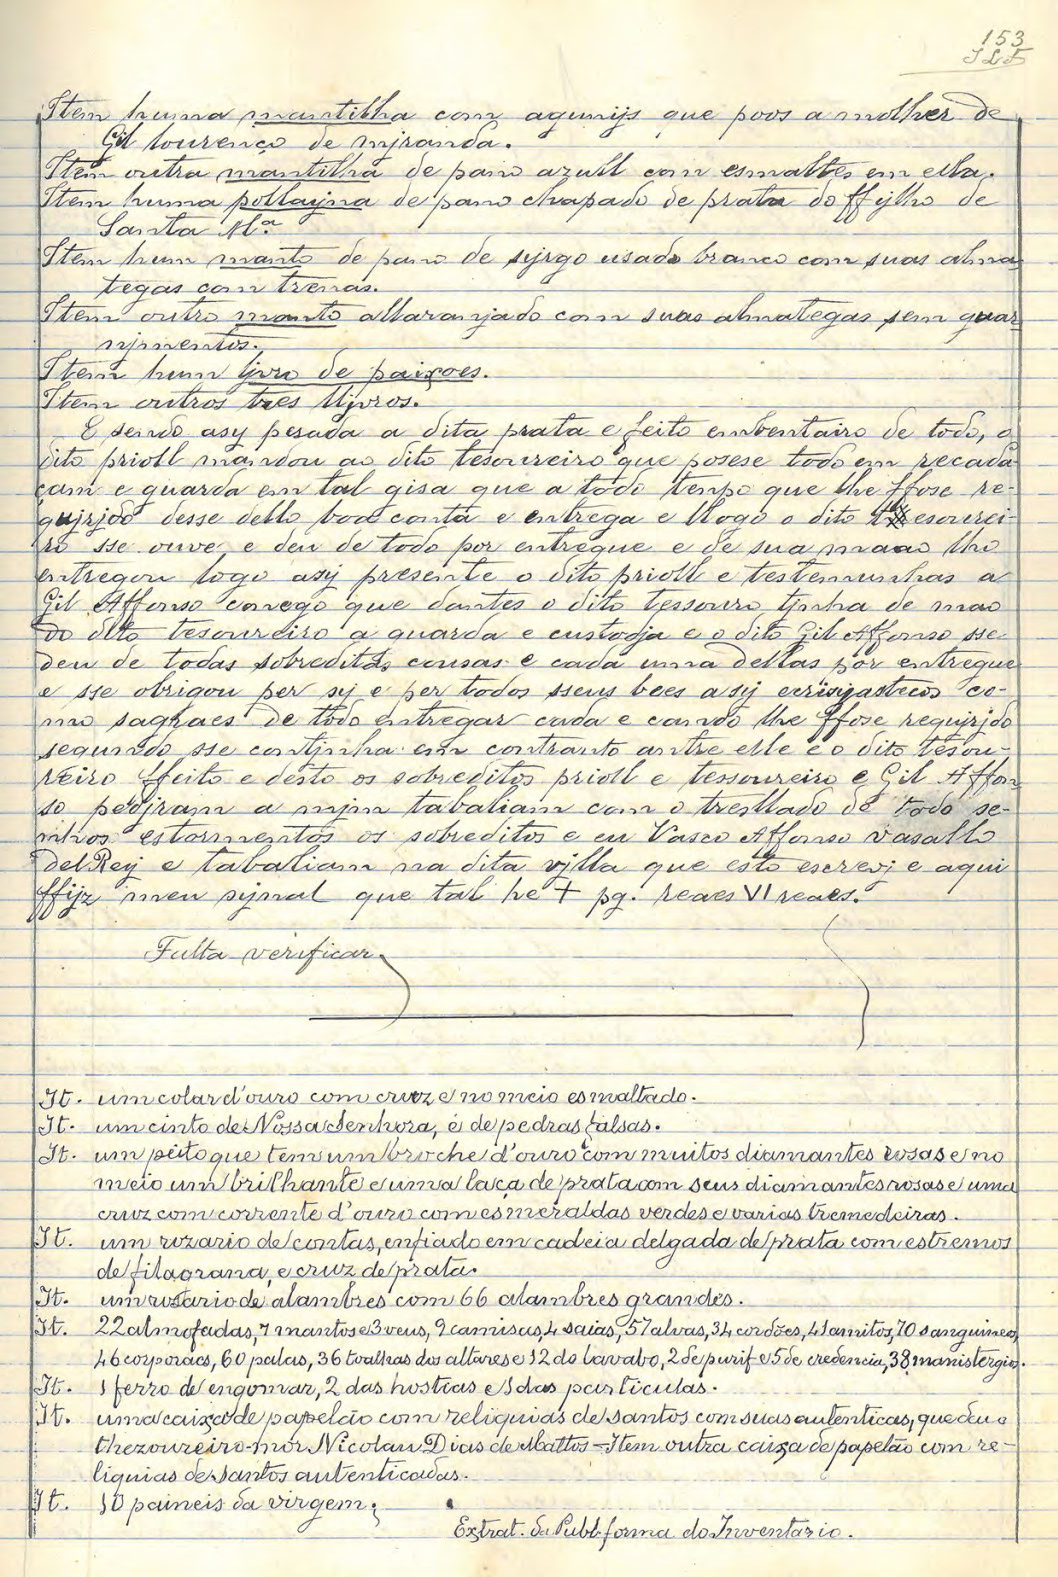 153
Item huma mantilha com agumijs que poos a molher de
Gil lourenço de mjranda.
Item outra mantilha de pano azull com esmaltes em ella.
Item huma pollayna de pano chapado de prata do ffylho de
Santa Mª.
Item hum manto de pano de syrgo usado branco com suas alma
tegas com trenas.
Item outro manto allaranjado com suas almategas sem guar
njmentos.
Item hum ljvro de paixoes.
Item outros tres lljvros.
E sendo asy pesada a dita prata e feito enbentairo de todo, o
dito prioll mandou ao dito tesoureiro que posese todo em recada
çam e guarda em tal gisa que a todo tenpo que lhe ffose re-
qujrjdo desse dello boa conta e entrega e llogo o dito tesourei-
ro sse ouve, e deu de todo por entregue e de sua maao lho
entregou logo asy presente o dito prioll e testemunhas a
Gil Affonso conego que dantes o dito tessouro tjnha de mao
do dito tesoureiro a guarda e custodja e o dito Gil Affonso sse
deu de todas sobreditas cousas e cada uma dellas por entregue
e sse obrigou per sy e per todos sseus bees asy ecrisyasticos co-
mo sagraes de todo entregar cada e cando lhe ffose requjrjdo
segundo sse contjnha em contrauto antre elle e o dito tesou-
reiro ffeito e desto os sobreditos prioll e tessoureiro e Gil Affon
so pedjram a mjm taballiam com o tresllado de todo se-
nhos estormentos os sobreditos e eu Vasco Affonso vasallo
del Rey e taballiam na dita vjlla que esto escrevj e aqui
ffijz meu synal que tal he + pg. reaes VI reaes.
Falta verificar.
It. um colar d'ouro com cruz e no meio esmaltado.
It. um cinto de Nossa Senhora, é de pedras falsas.
It. um peito que tem um broche d'ouro com muitos diamantes rosas e no
meio um brilhante e uma laça de prata com seus diamantes rosas e uma
cruz com corrente d'ouro com esmeraldas verdes e varias tremedeiras.
It. um rozario de contas, enfiado em cadeia delgada de prata com estremos
de filagrana, e cruz de prata.
It. um rosario de alambres com 66 alambres grandes.
It. 22 almofadas, 7 mantos e 3 veus, 9 camisas, 4 saias, 57 alvas, 34 cordões, 41 amitos, 70 sanguineos,
46 corporaes, 60 palas, 36 toalhas dos altares e 12 do lavabo, 2 de purif e 5 de credencia, 38 manistergios.
It. 1 ferro de engomar, 2 das hostias e 1 das particulas.
It. uma caixa de papelão com reliquias de santos com suas autenticas, que deu o
thezoureiro-mór Nicolau Dias de Mattos - Item outra caixa de papelão com re-
liquias de santos autenticadas.
It. 10 paineis da virgem;
Extrat. da Publ. forma do Inventario.